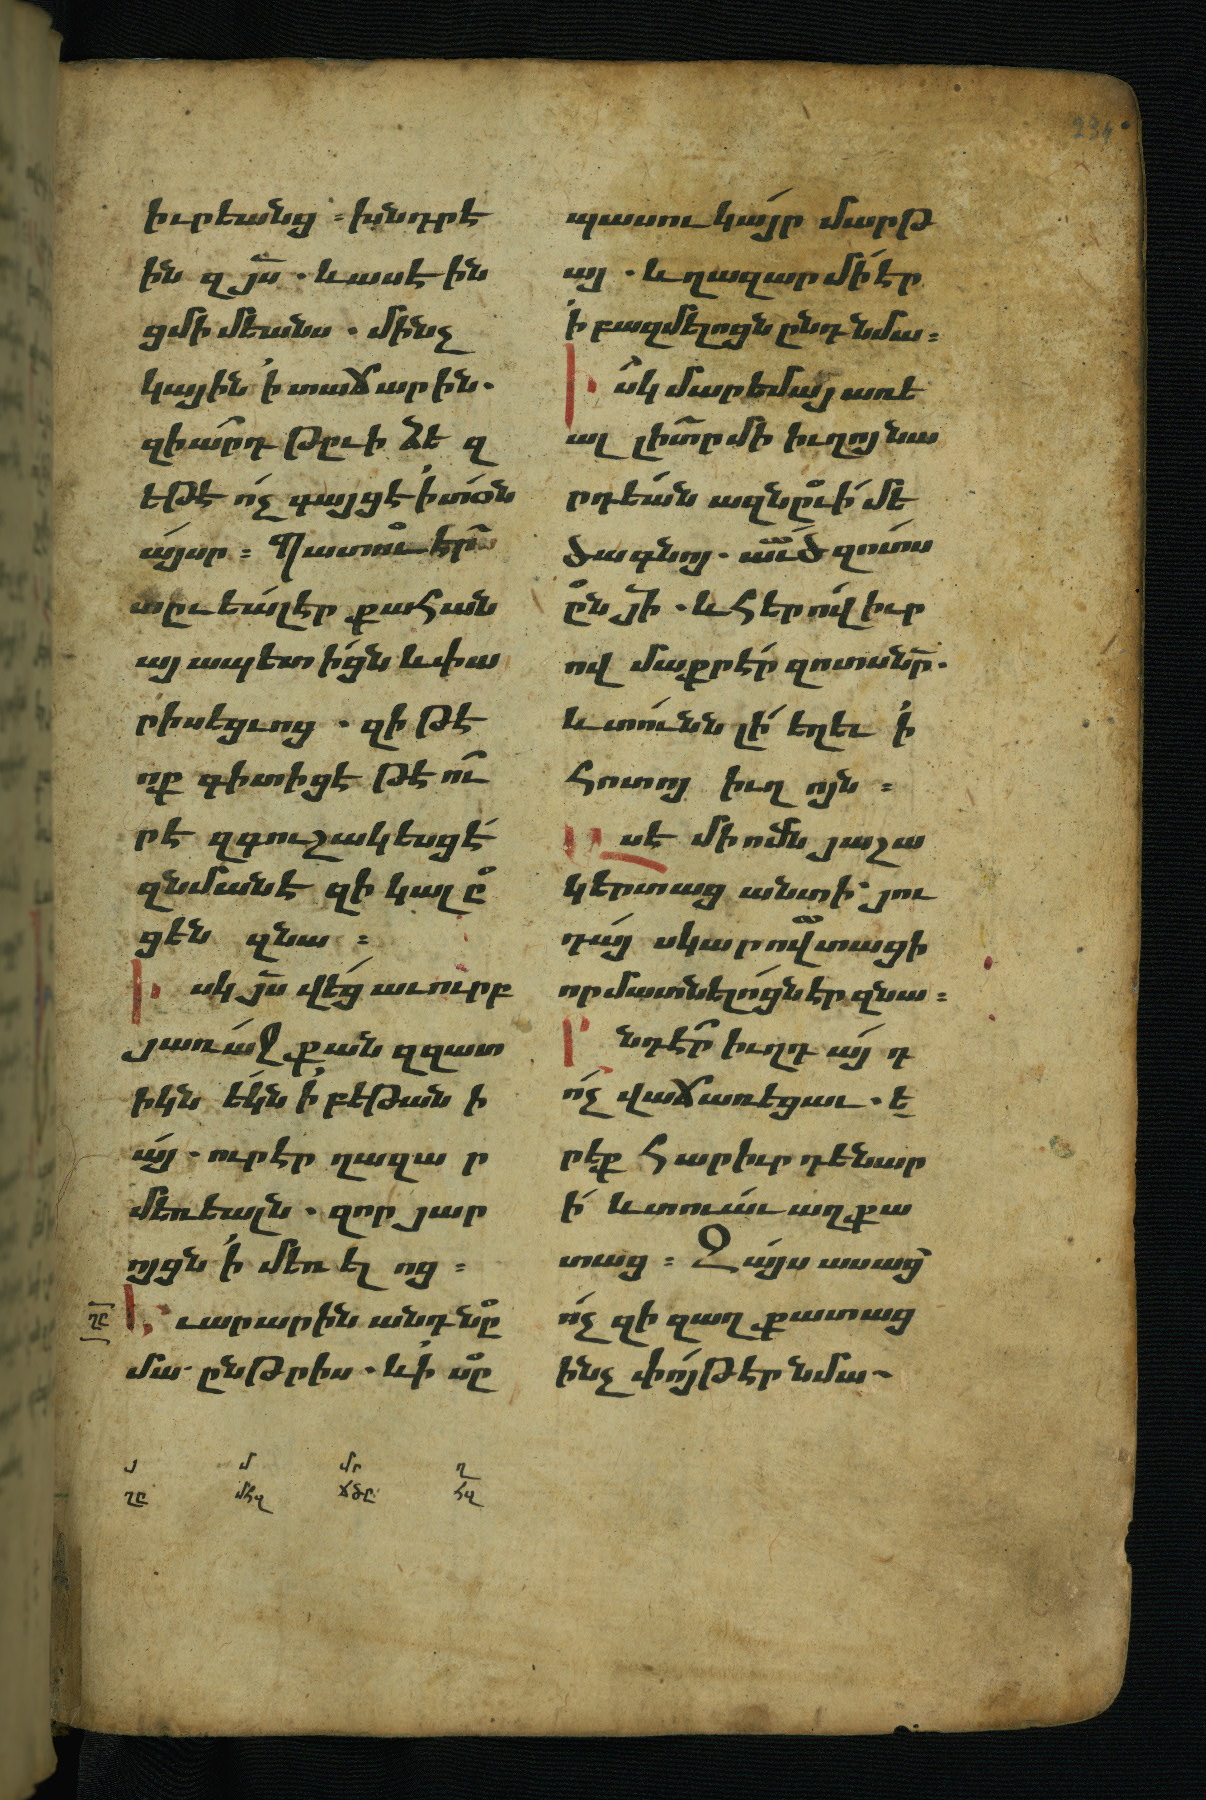 234
իւրեանց ։ խնդրէ
ին զյս · և ասէին
ցմիմեանս · մինչ
կային ՚ի տաճարին ·
զիարդ թըւի ձէ զ
եթէ ոչ գայցէ ՚ի տօն
այսր ։ Պատուէր
տըւեալ էր քահան
այապետիցն և փա
րիսեցւոց · զի թէ
ոք գիտիցէ թէ ու
րէ զգուշակեսցէ
զնմանէ զի կալը
ցեն զնա ։
Իսկ յս վեց աւուրբ
յառաջ քան զզատ
իկն եկն ՚ի բեթանի
այ · ուր էր ղազար
մեռեալն · զոր յար
ոյցն ՚ի մեռելոց ։
ղը
Եւ արարին անդ նը
մա ընթրիս · և ՚ի սը
պասու կայր մարթ
այ · և ղազար մի էր
՚ի բազմելոցն ընդ նմա ։
Իսկ մարեմայ առե
ալ լիտր մի իւղոյ նա
րդեան ազնըւի մե
ծագնոյ · աւծ զոտս
ըն յի · և հերով իւր
ով մաքրէր զոտսնր ·
և տունն լի եղեւ ՚ի
հոտոյ իւղոյն ։
Ասէ մի ոմն յաշա
կերտաց անտի յու
դայ սկարովտացի
որ մատնելոցն էր զնա ։
Ընդէր իւղդ այդ
ոչ վաճառեցաւ · ե
րեք հարիւր դենար
ի և տուաւ աղքա
տաց ։ Զայս ասաց
ոչ զի զաղքատաց
ինչ փոյթ էր նմա
յ մ մր ղ
ղը մհզ ճծը հզ